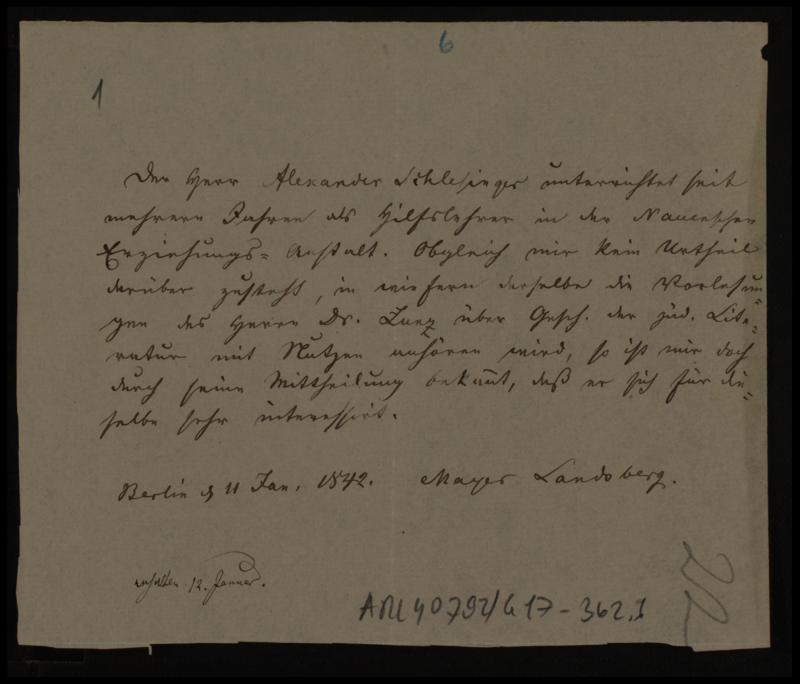 6
1
Der Herr Alexander Schlesinger unterrichtet seit
mehrern Jahren als Hilfslehrer in der Nauenschen
Erziehungs-Anstalt. Obgleich mir kein Urtheil
darüber zusteht, in wiefern derselbe die Vorlesun-
gen des Herrn Dr. Zunz über Gesch. der jüd. Lite-
ratur mit Nutzen anhören wird, so ist mir doch
durch seine Mittheilung bekannt, daß er sich für die-
selbe sehr interessirt.
Berlin d 11 Jan. 1842. Mayer Landsberg.
erhalten 12. Januar.
ARC 4 0792/G 17-362.1